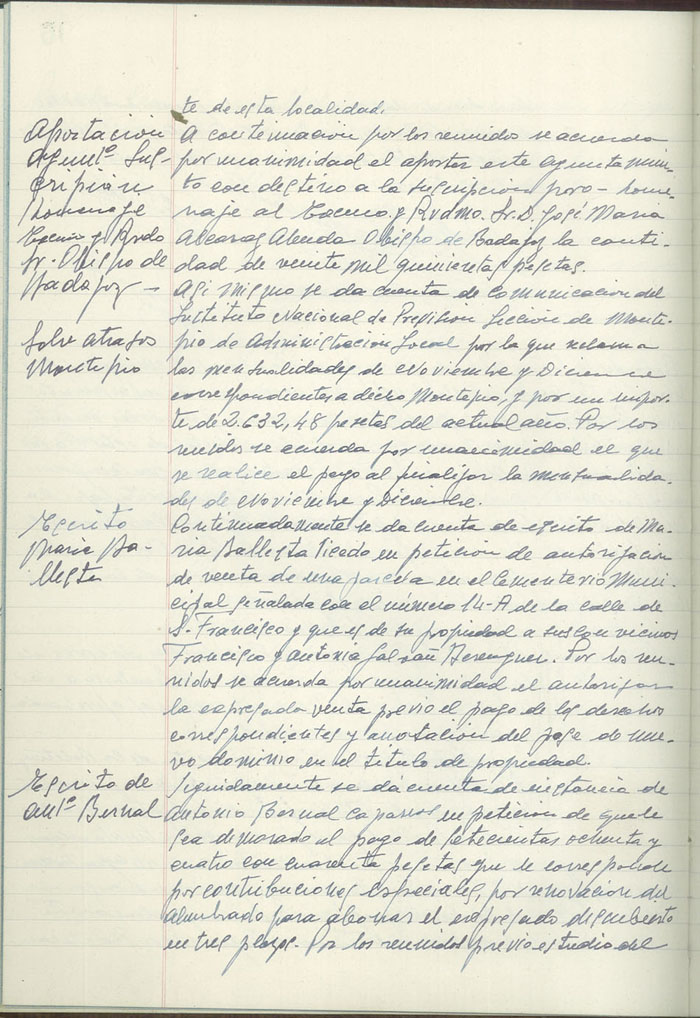 te de esta localidad.
Aportacion
Ayunt.º Sus-
cripción
Homenage
Excmo y Rvdo
Sr. Obispo de
Badajoz -
A continuacion por los reunidos se acuerda
por unanimidad el aportar este ayuntamien-
to con destino a la suscripcion pro-home-
naje al Excmo. y Rvdmo. Sr. D. José Maria
Alcaraz Alenda Obispo de Badajoz la canti-
dad de veinte mil quinientas pesetas.
Sobre atrasos
Montepio
Asi mismo se da cuenta de comunicacion del
Instituto Nacional de Prevision Seccion de Monte-
pio de Administracion Local por la que reclama
las mensualidades de Noviembre y Diciembre
correspondientes a dicho Montepio, y por un impor-
te de 2.632,48 pesetas del actual año. Por los
reunidos se acuerda por unanimidad el que
se realice el pago al finalizar la mensualida-
des de Noviembre y Diciembre.
Escrito
Maria Ba-
llesta
Continuadamente se da cuenta de escrito de Ma-
ria Ballesta Picedo en peticion de autorizacion
de venta de una parcela en el Cementerio Muni-
cipal señalada con el número 14-A de la calle de
S. Francisco y que es de su propiedad a sus convecinos
Francisco y Antonia Galvañ Berenguer. Por los reu-
nidos se acuerda por unanimidad el autorizar
la expresada venta previo el pago de los derechos
correspondientes y anotacion del pase de nue-
vo dominio en el titulo de propiedad.
Escrito de
Antº Bernal
Seguidamente se da cuenta de instancia de
Antonio Bernal Caparros en peticion de que le
sea demorado el pago de setecientas ochenta y
cuatro con cuarenta pesetas que le corresponde
por contribuciones especiales, por renovacion del
alumbrado para abonar el expresado descubierto
en tres plazos. Por los reunidos previo estudio del